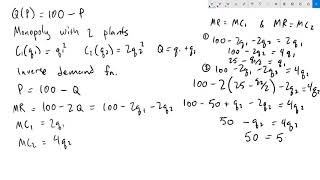 Q(P) = 100 - P
Monopoly with 2 plants
C₁(q₁) = q₁² C₂(q₂) = 2q₂² Q = q₁ + q₂
Inverse demand fn.
P = 100 - Q
MR = 100 - 2Q = 100 - 2q₁ - 2q₂
MC₁ = 2q₁
MC₂ = 4q₂
MR = MC₁ & MR = MC₂
① 100 - 2q₁ - 2q₂ = 2q₁
100 - 2q₂ = 4q₁
25 - q₂/2 = q₁
② 100 - 2q₁ - 2q₂ = 4q₂
100 - 2(25 - q₂/2) - 2q₂ = 4q₂
100 - 50 + q₂ - 2q₂ = 4q₂
50 - q₂ = 4q₂
50 = 5